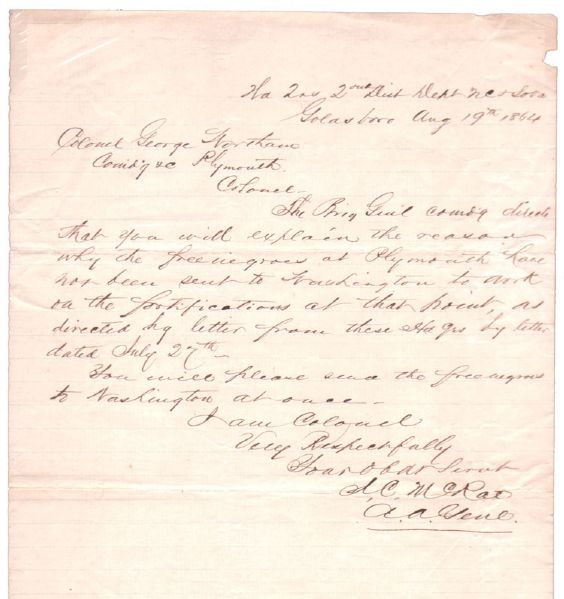 Hd Qrs 2nd Dist Dept NC & So Va
Goldsboro Aug 19th 1864
Colonel George Wortham
Comd'g &c Plymouth.
Colonel-
The Brig Genl comd'g directs
that you will explain the reason
why the free negroes at Plymouth have
not been sent to Washington to work
on the fortifications at that point, as
directed by letter from these Hd Qrs by letter
dated July 27th-
You will please send the free negroes
to Washington at once-
I am Colonel
Very Respectfully
Your Obdt Servt
J. C. McRae
A. A. Genl.